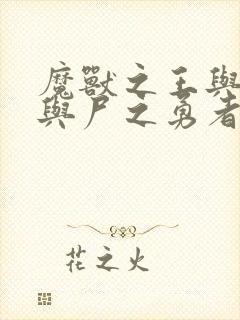 魔獸之王與
與尸之勇者
花之火